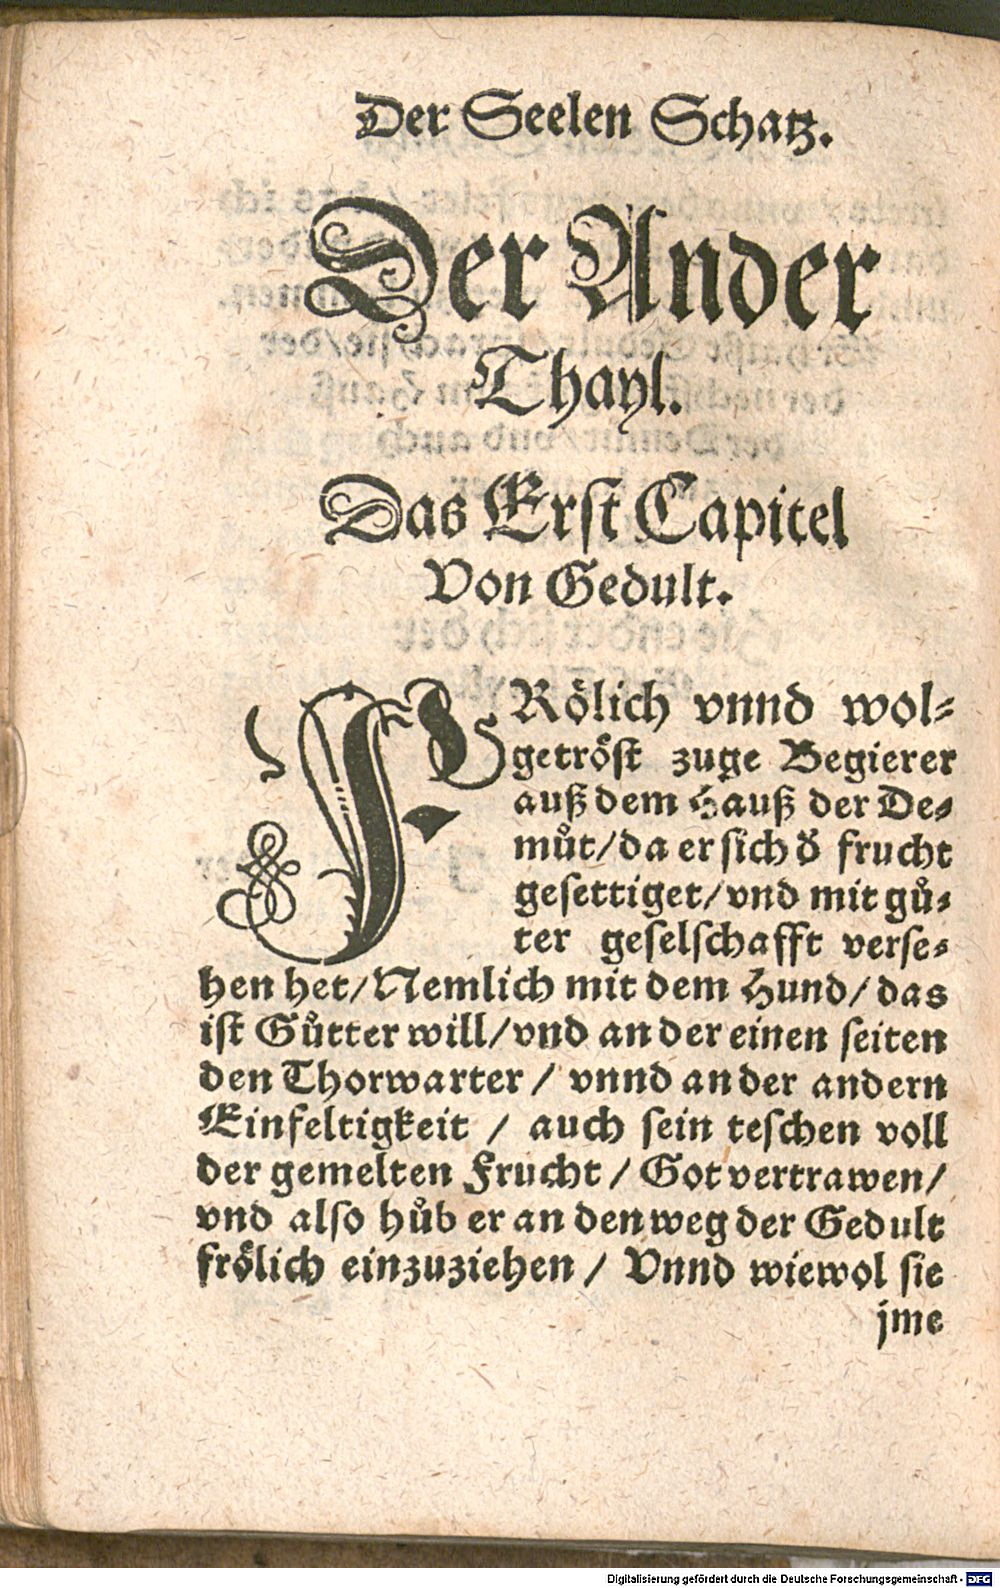 Der Seelen Schatz.
Der Ander
Thayl.
Das Erst Capitel
Von Gedult.
FRölich vnnd wol⸗
getröst zuge Begierer
auß dem Hauß der De⸗
muͤt/da er sich d̕ frucht
gesettiget/vnd mit guͤ⸗
ter geselschafft verse⸗
hen het/Nemlich mit dem Hund/das
ist Guͤtter will/vnd an der einen seiten
den Thorwarter/vnnd an der andern
Einfeltigkeit/auch sein teschen voll
der gemelten Frucht/Got vertrawen/
vnd also huͤb er an den weg der Gedult
frölich einzuziehen/Vnnd wiewol sie
jme
Digitalisierung gefördert durch die Deutsche Forschungsgemeinschaft - DFG